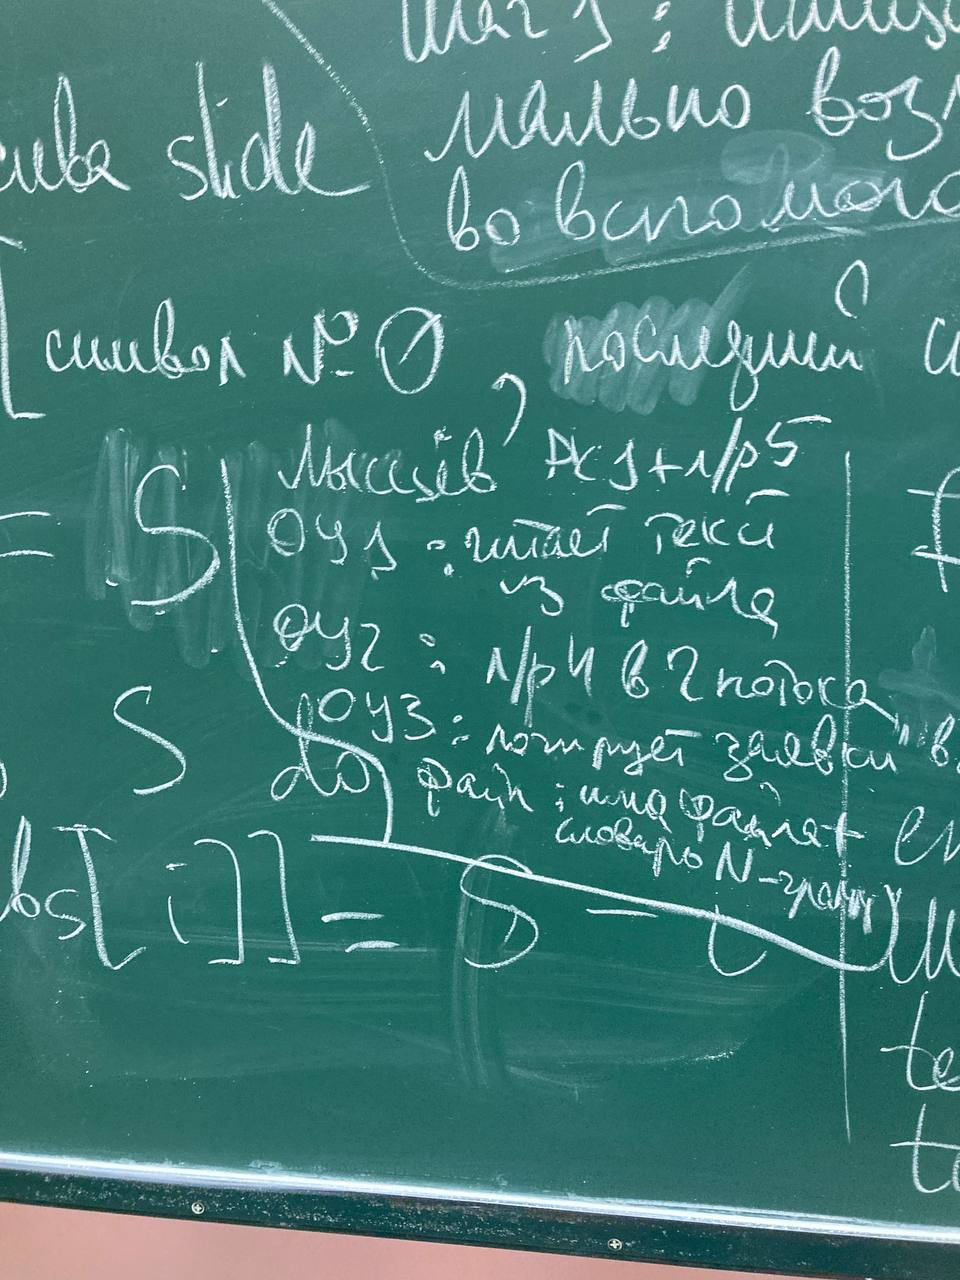 мально
во вспомога
slide
символ № 0, последний
= S
Мысцев РК1+л/р5
ОУ1 : читает текст
из файла
ОУ2 : л/р4 в 2 потока
ОУ3 : логирует заявки в
файл : имя файла +
словарь N-грамм
S
до
bs[i]] = S - i
te